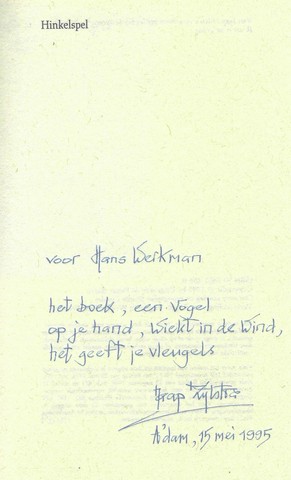 Hinkelspel
voor Hans Werkman
het boek, een vogel
op je hand, wiekt in de wind,
het geeft je vleugels
A'dam, 15 mei 1995